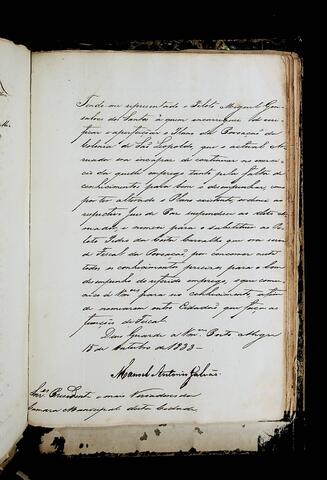 Tendo me representado o Piloto Miguel Gon-
salves dos Santos a quem encarreguei de veri-
ficar e aperfeiçoar o Plano da Povoação da
Colonia de São Leopoldo, que o actual Ar-
ruador era incapaz de continuar no exerci-
cio daquelle emprego tanto pela falta de
conhecimentos para bem o desempenhar, como
por ter alterado o Plano existente, ordenei ao
respectivo Juiz de Paz suspendesse ao dito Ar-
ruador, e nomeei para o substituir ao Pi-
loto Pedro da Costa Carvalho que ora serve
de Fiscal da Povoação, por concorrer neste
todos os conhecimentos precisos para o bom
desempenho do referido emprego, o que comu-
nico a Vmces para seu conhecimento, afim
de nomearem outro Cidadão que faça as
funcções de Fiscal.
Deos Guarde a Vmces Porto Alegre
15 de Outubro de 1833 -
Manoel Antonio Galvão
Snres Presidente e mais Vereadores da
Camara Municipal desta Cidade.